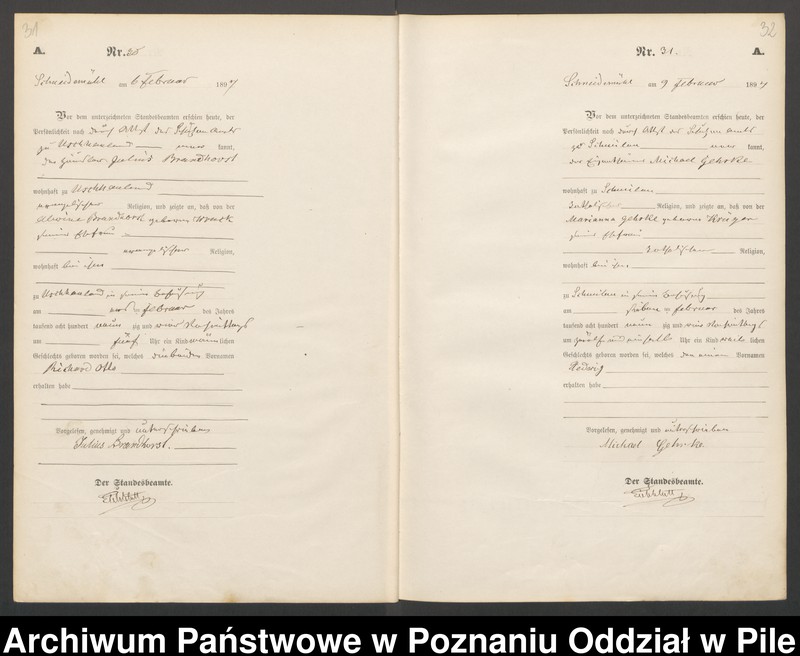 31
A.
Nr.
Schneidemühl am 6 Februar 1894
Vor dem unterzeichneten Standesbeamten erschien heute, der
Persönlichkeit nach durch Attest des Schulzen Amts
zu Uschhauland kannt,
der Händler Julius Brandhorst
wohnhaft zu Uschhauland
evangelischer Religion, und zeigte an, daß von der
Alwine Brandhorst geborene
seiner Ehefrau
evangelischer Religion,
wohnhaft bei ihm
zu Uschhauland in seiner Behausung
am Februar des Jahres
tausend acht hundert neun zig und vier Nachmittags
um fünf Uhr ein Kind männlichen
Geschlechts geboren worden sei, welches die beiden Vornamen
Richard Otto
erhalten habe
Vorgelesen, genehmigt und unterschrieben
Julius Brandhorst.
Der Standesbeamte.
32
Nr. 31. A.
Schneidemühl am 9 Februar 1894
Vor dem unterzeichneten Standesbeamten erschien heute, der
Persönlichkeit nach durch Attest des Schulzen Amts
zu Schmilau kannt,
der Eigenthümer Michael Gehrke
wohnhaft zu Schmilau
katholischer Religion, und zeigte an, daß von der
Marianna Gehrke geborene Krüger
seiner Ehefrau
katholischer Religion,
wohnhaft bei ihm
zu Schmilau in seiner Behausung
am sieben Februar des Jahres
tausend acht hundert neun zig und vier Nachmittags
um zwölf und einhalb Uhr ein Kind weib lichen
Geschlechts geboren worden sei, welches den einen Vornamen
Hedwig
erhalten habe
Vorgelesen, genehmigt und unterschrieben
Michael Gehrke
Der Standesbeamte.
Archiwum Państwowe w Poznaniu Oddział w Pile